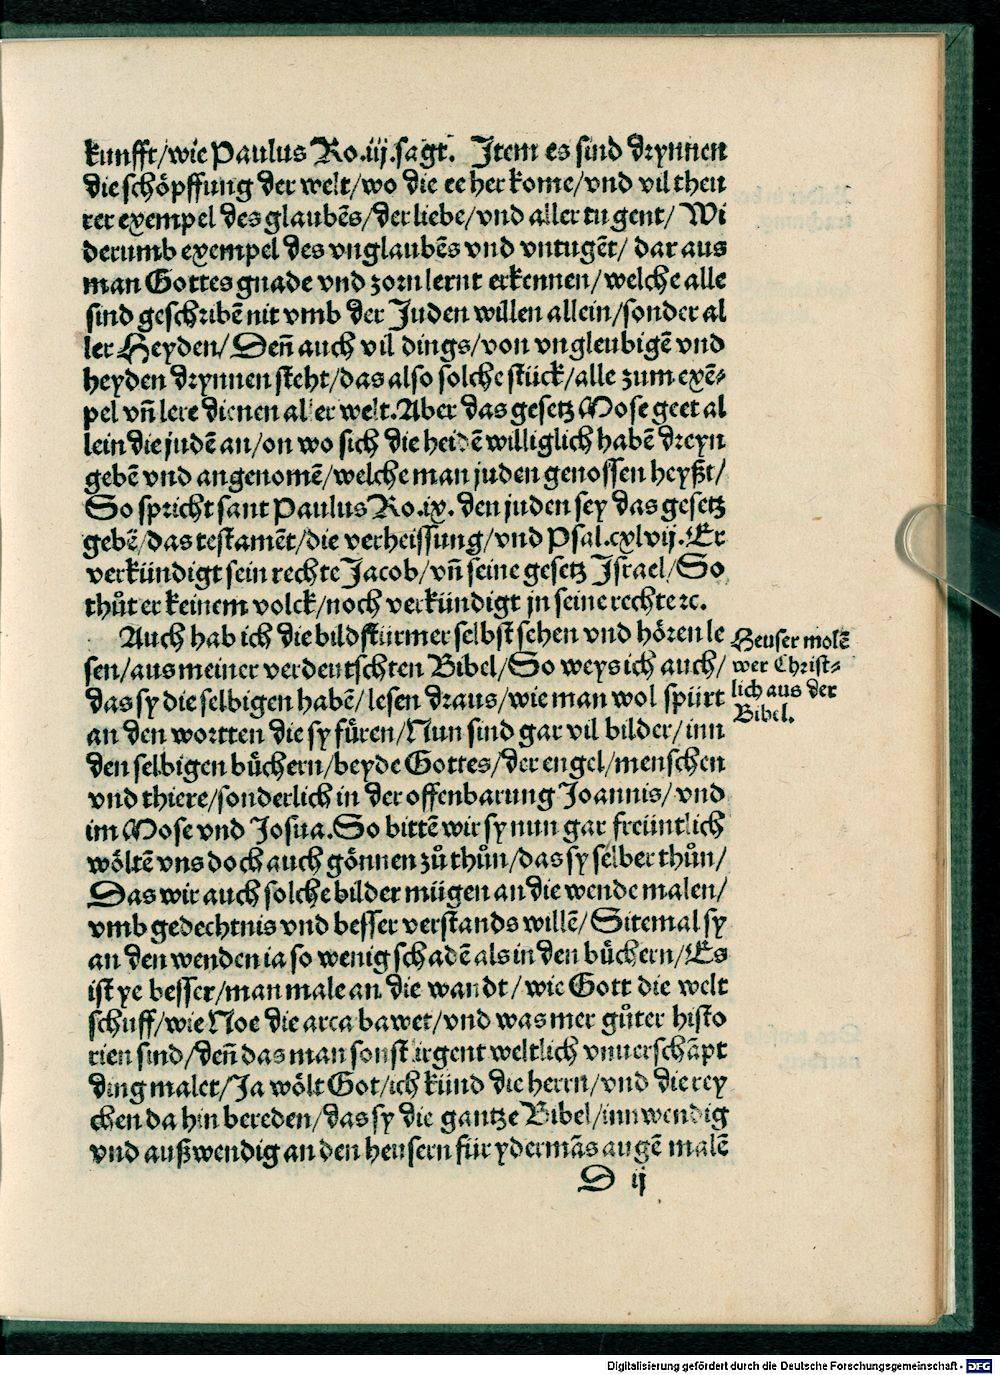 kunfft/wie Paulus Ro.iij.sagt. Item es sind drynnen
die schöpffung der welt/wo die ee her kome/vnd vil theu
rer exempel des glaubẽs/der liebe/vnd aller tugent/ Wi
derumb exempel des vnglaubẽs vnd vntugẽt/ dar aus
man Gottes gnade vnd zorn lernt erkennen/welche alle
sind geschribẽ nit vmb der Juden willen allein/sonder al
ler Heyden/Deñ auch vil dings/von vngleubigẽ vnd
heyden drynnen steht/das also solche stück/alle zum exẽ-
pel vñ lere dienen aller welt.Aber das gesetz Mose geet al
lein die judẽ an/on wo sich die heidẽ williglich habẽ dreyn
gebẽ vnd angenomẽ/welche man juden genossen heyßt/
So spricht sant Paulus Ro.ix. den juden sey das gesetz
gebẽ/das testamẽt/die verheissung/vnd Psal.cxlvij.Er
verkündigt sein rechte Jacob/vñ seine gesetz Israel/So
thůt er keinem volck/noch verkündigt jn seine rechte ⁊c.
Auch hab ich die bildstürmer selbst sehen vnd hören le
sen/aus meiner verdeutschten Bibel/So weys ich auch/
das sy die selbigen habẽ/lesen draus/wie man wol spürt
an den wortten die sy füren/Nun sind gar vil bilder/inn
den selbigen büchern/beyde Gottes/der engel/menschen
vnd thiere/sonderlich in der offenbarung Joannis/vnd
im Mose vnd Josua.So bittẽ wir sy nun gar freüntlich
wöltẽ vns doch auch gönnen zů thůn/das sy selber thůn/
Das wir auch solche bilder mügen an die wende malen/
vmb gedechtnis vnd besser verstands willẽ/Sitemal sy
an den wenden ia so wenig schadẽ als in den büchern/Es
ist ye besser/man male an die wandt/wie Gott die welt
schuff/wie Noe die arca bawet/vnd was mer gůter histo
rien sind/deñ das man sonst irgent weltlich vnuerschãpt
ding malet/Ja wölt Got/ich künd die herrn/vnd die rey
chen da hin bereden/das sy die gantze Bibel/innwendig
vnd außwendig an den heusern für ydermãs augẽ malẽ
D ij
Heuser molẽ
wer Christ-
lich aus der
Bibel.
Digitalisierung gefördert durch die Deutsche Forschungsgemeinschaft - DFG